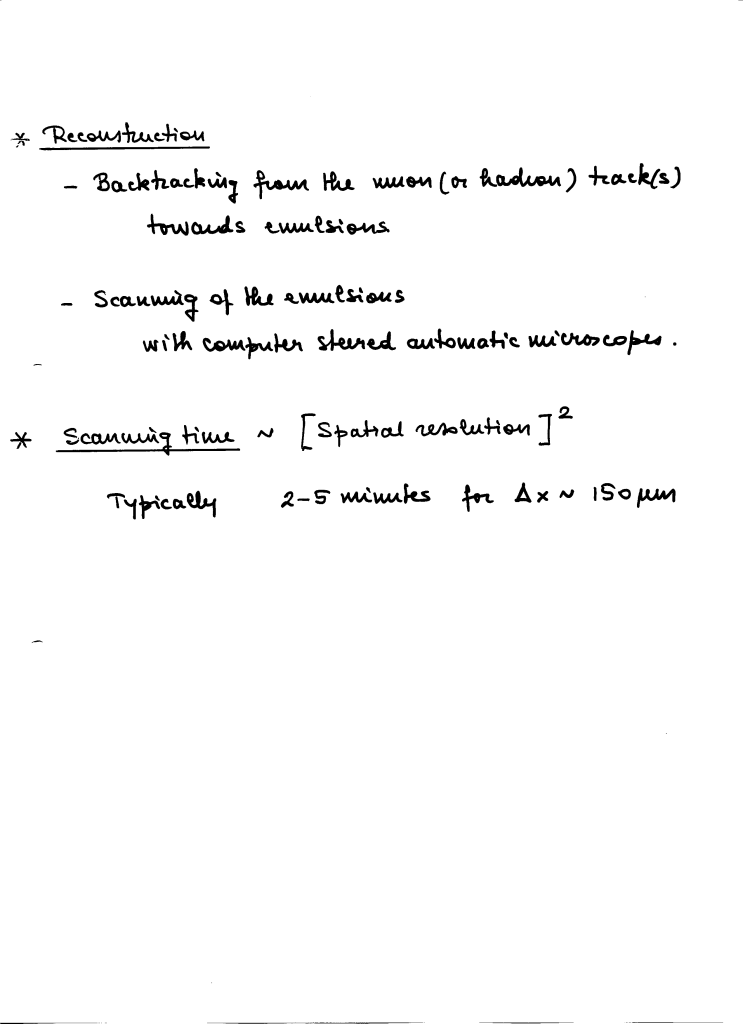 * Reconstruction
- Backtracking from the muon (or hadron) track(s)
towards emulsions
- Scanning of the emulsions
with computer steered automatic microscopes.
* Scanning time ~ [Spatial resolution]²
Typically 2-5 minutes for Δx ~ 150 μm